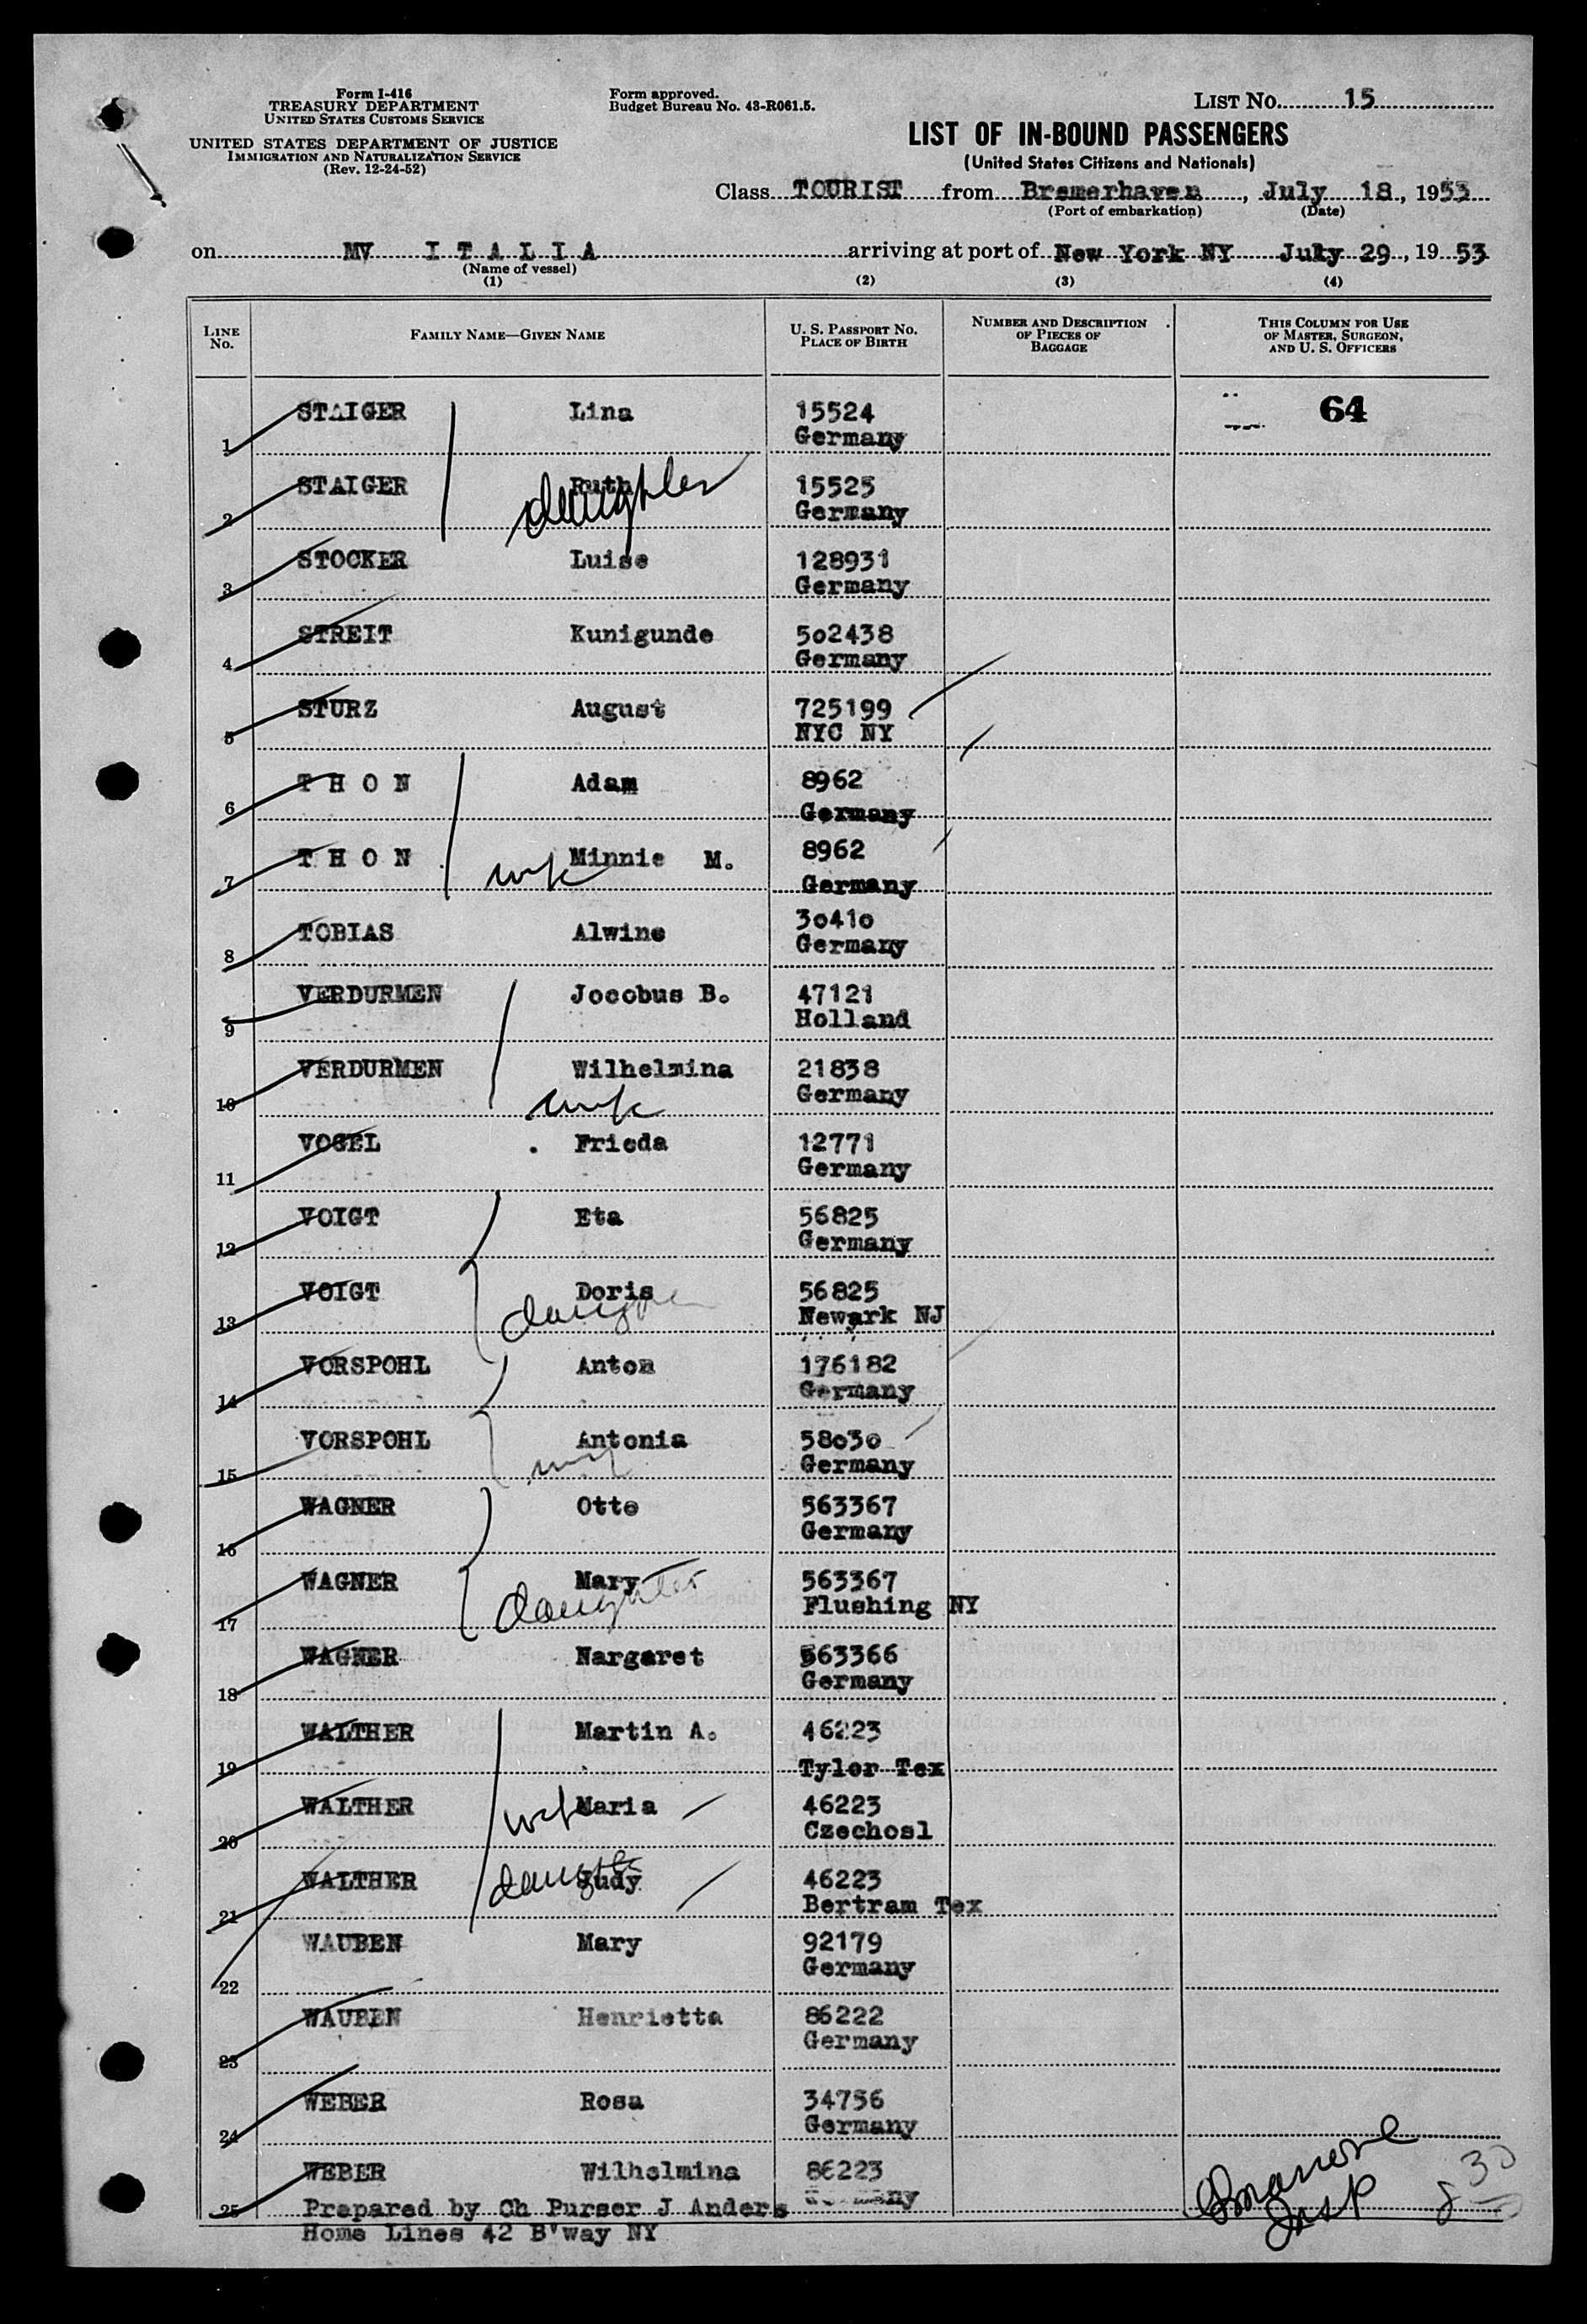 Form I-416
TREASURY DEPARTMENT
UNITED STATES CUSTOMS SERVICE
UNITED STATES DEPARTMENT OF JUSTICE
IMMIGRATION AND NATURALIZATION SERVICE
(Rev. 12-24-52)
Form approved.
Budget Bureau No. 43-R061.5.
LIST NO. 15
LIST OF IN-BOUND PASSENGERS
(United States Citizens and Nationals)
Class TOURIST from Bremerhaven, July 18, 1953
(Port of embarkation) (Date)
on MV I T A L I A arriving at port of New York NY July 29, 1953
(Name of vessel)
(1) (2) (3) (4)
LINE NO.
FAMILY NAME—GIVEN NAME
U. S. PASSPORT NO.
PLACE OF BIRTH
NUMBER AND DESCRIPTION
OF PIECES OF
BAGGAGE
THIS COLUMN FOR USE
OF MASTER, SURGEON,
AND U. S. OFFICERS
64
1 STAIGER Lina 15524
Germany
2 STAIGER Ruth 15525
daughter Germany
3 STOCKER Luise 128931
Germany
4 STREIT Kunigunde 502438
Germany
5 STURZ August 725199
NYC NY
6 T H O N Adam 8962
Germany
7 T H O N wife Minnie M. 8962
Germany
8 TOBIAS Alwine 30410
Germany
9 VERDURMEN Jocobus B. 47121
Holland
10 VERDURMEN Wilhelmina 21838
wife Germany
11 VOGEL Frieda 12771
Germany
12 VOIGT Eta 56825
Germany
13 VOIGT Doris 56825
daughter Newark NJ
14 VORSPOHL Anton 176182
Germany
15 VORSPOHL Antonia 58030
wife Germany
16 WAGNER Otto 563367
Germany
17 WAGNER Mary 563367
daughter Flushing NY
18 WAGNER Nargaret 563366
Germany
19 WALTHER Martin A. 46223
Tyler Tex
20 WALTHER wife Maria 46223
Czechosl
21 WALTHER daughter Judy 46223
Bertram Tex
22 WAUBEN Mary 92179
Germany
23 WAUBEN Henrietta 86222
Germany
24 WEBER Rosa 34756
Germany
25 WEBER Wilhelmina 86223
Germany
Prepared by Ch Purser J Anders
Home Lines 42 B'way NY
Insp
8 30